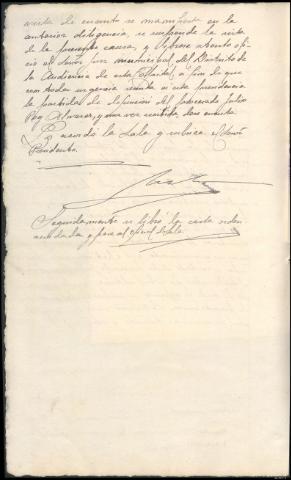 cuenta de cuanto se manifiesta en la
anterior diligencia, se suspende la vista
de la presente causa, y líbrese atento ofi-
cio al Señor Juez municipal del Distrito de
la Audiencia de esta Ciudad, a fin de que
con toda urgencia remita a esta presidencia
la partida de defunción del procesado Julio
Rey Alvarez, y una vez recibida, dese cuenta.
Lo acordó la Sala y rubrica el Señor
Presidente.
Seguidamente se libró la carta orden
acordada y pasa al oficial de Sala.